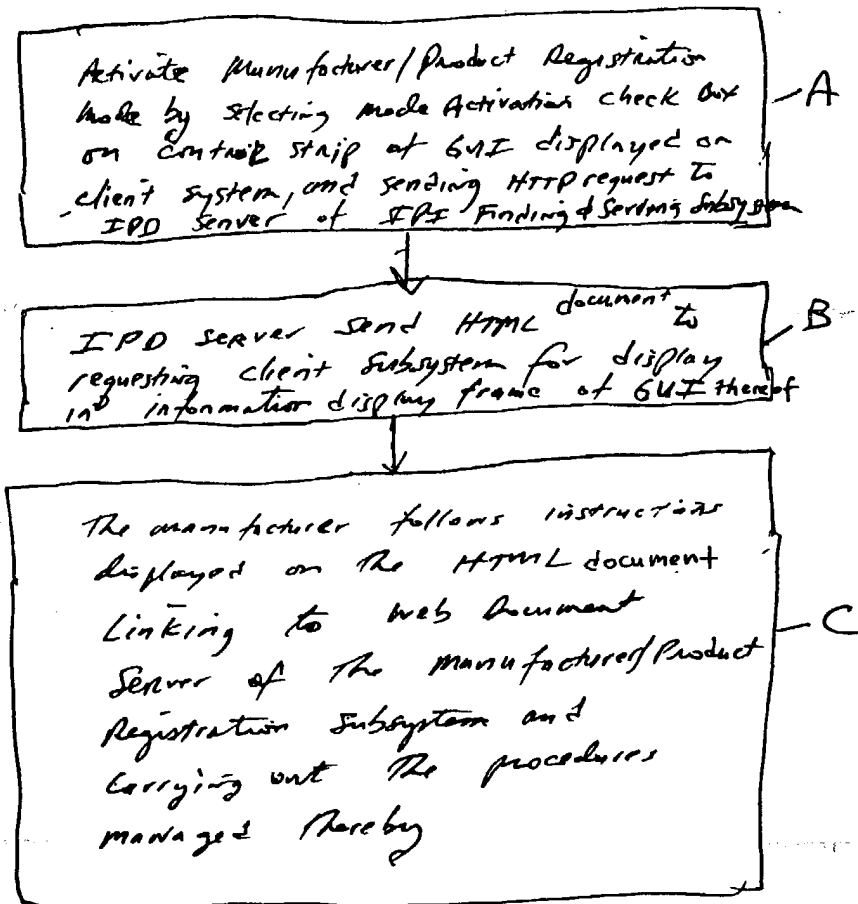 Activate Manufacturer/Product Registration
Mode by selecting mode Activation check Box
on control strip of GUI displayed on
client system, and sending HTTP request to
IPD Server of IPI Finding & Serving Subsystem
A
IPD Server send HTML document to
requesting client Subsystem for display
in information display frame of GUI thereof
B
The manufacturer follows instructions
displayed on the HTML document
Linking to web Document
Server of the manufacturer/Product
Registration Subsystem and
Carrying out the procedures
managed thereby
C